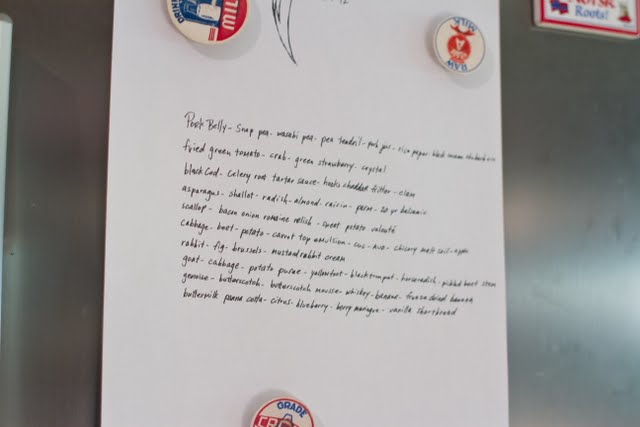 DRINK
MIL
12
MILK
A
RAW
Roots!
Pork Belly - Snap pea - wasabi pea - pea tendril - pork jus - rice paper - black sesame
fried green tomato - crab - green strawberry - crystal
black cod - celery root tartar sauce - hooks cheddar fritter - clam
asparagus - shallot - radish - almond - raisin - parm - 20 yr balsamic
scallop - bacon onion romaine relish - sweet potato velouté
cabbage - beet - potato - carrot top emulsion - cuc - avo - chicory malt soil - apple
rabbit - fig - brussels - mustard rabbit cream
goat - cabbage - potato puree - yellowfoot - black trumpet - horseradish - pickled beet stem
genoise - butterscotch - butterscotch mousse - whiskey - banana - freeze dried banana
buttermilk panna cotta - citrus - blueberry - berry meringue - vanilla shortbread
GRADE